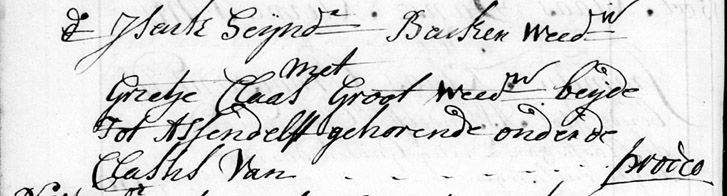 Isack Seijnd.r Backer Weed.r
met
Grietje Claas Groot Weed.w beijde
tot Assendelft gehorende onder de
Classis Van . . . . . . prodeo